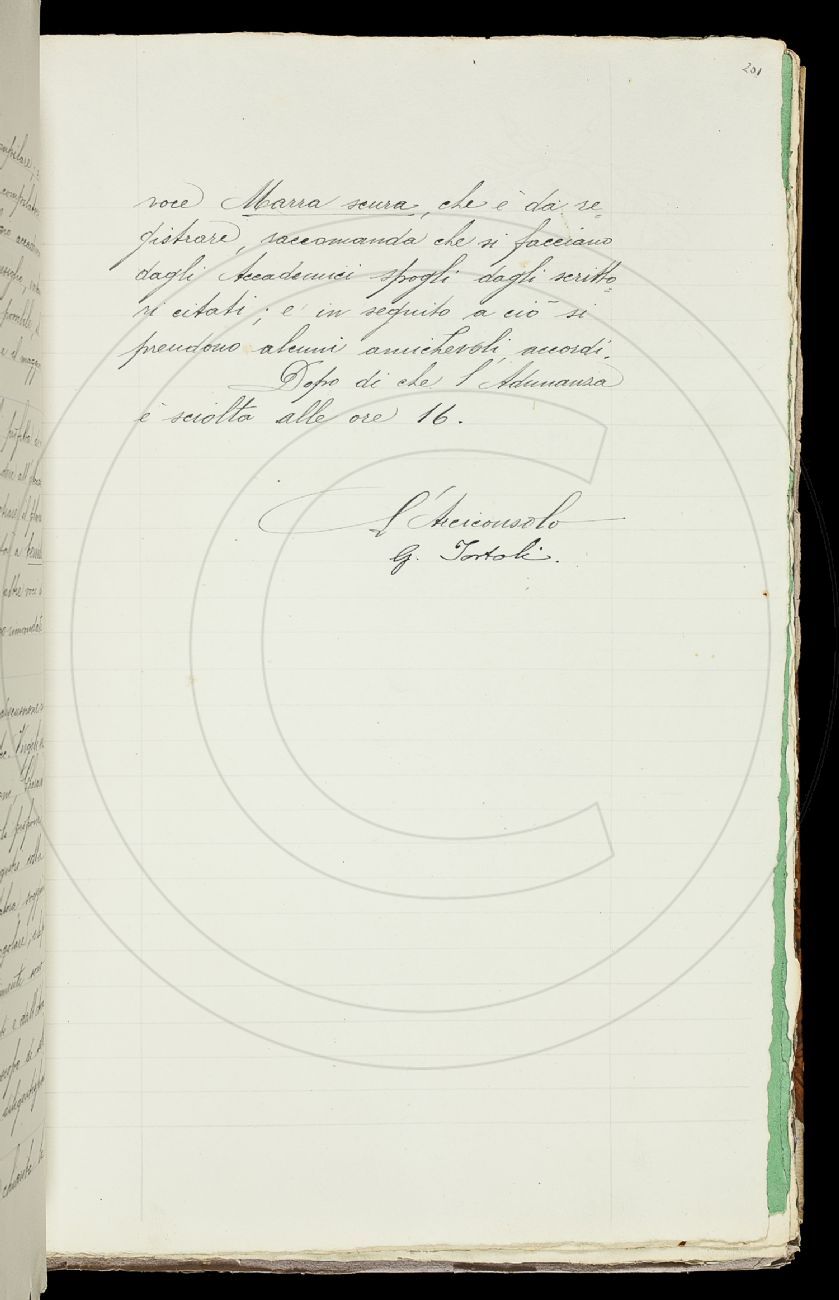 201
voce Marra scura, che è da re-
gistrare, raccomanda che si facciano
dagli Accademici spogli dagli scritto-
ri citati; e in seguito a ciò si
prendono alcuni amichevoli accordi.
Dopo di che l'Adunanza
è sciolta alle ore 16.
L'Arciconsolo
G. Tortoli.